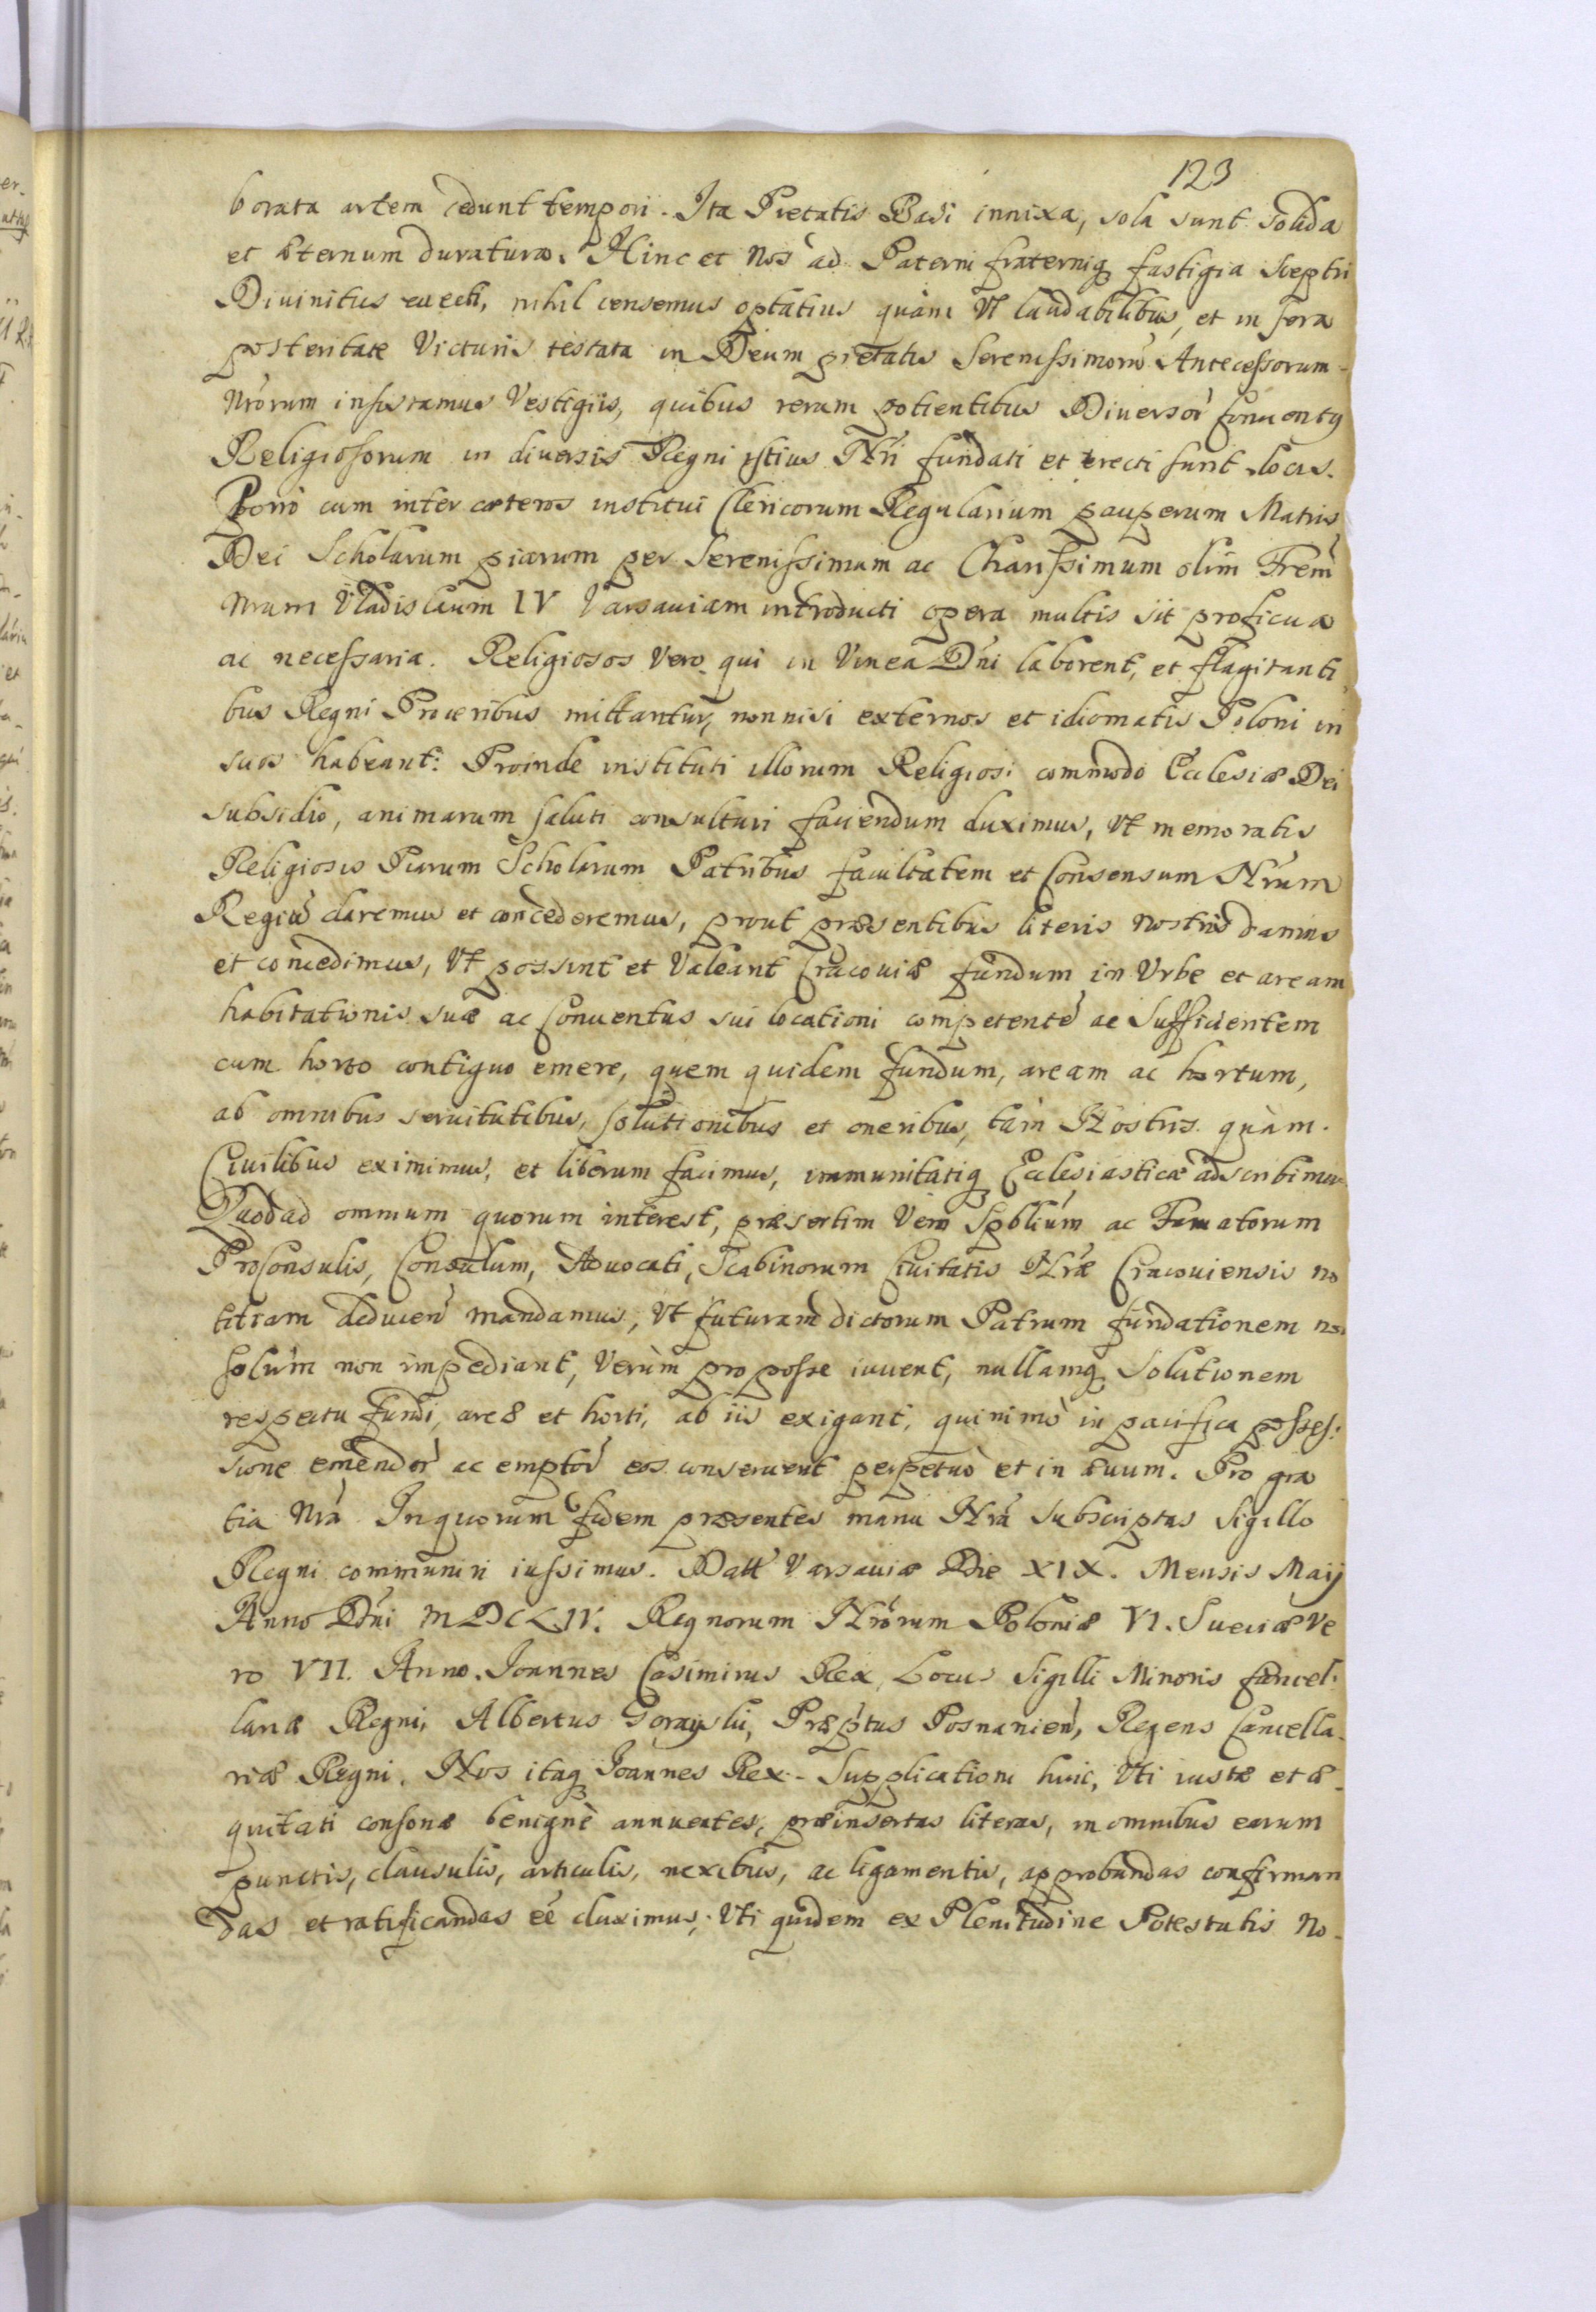 123
borata artem cedunt tempori. Ita Pietatis Basi innixa, sola sunt solida
et æternum duratura. Hinc et Nos ad Paterni fraterniq fastigia Sceptri
Diuinitus euecti, nihil censemus optatius quàm Vt laudabilibus, et in sera
posteritate Victuris testata in Deum pietatis Serenissimorũ Antecessorum
Nrorum insistamus Vestigiis, quibus rerum potientibus Diuersor Conuentq
Religiosorum in diuersis Regni istius Nri fundati et erecti sunt locis.
Porro cum inter cæteros institui Clericorum Regularium pauperum Matris
Dei Scholarum piarum per Serenissimum ac Charissimum olim Frem
Nrum Vladislaum IV Varsauiam introducti opera multis sit proficua
ac necessaria. Religiosos Vero qui in Vinea Dni laborent, et flagitanti
bus Regni Proceribus mittantur, nonnisi externos et idiomatis Poloni in
suos habeant: Proinde instituti illorum Religiosi commodo Ecclesiæ Dei
subsidio, animarum saluti consulturi faciendum duximus, Vt memoratis
Religiosis Piarum Scholarum Patribus facultatem et Consensum Nrum
Regiũ daremus et concederemus, prout præsentibus literis nostris damus
et concedimus, Vt possint et Valeant Cracouiæ fundum in Vrbe et aream
habitationis suæ ac Conuentus sui locationi competentẽ ac Sufficientem
cum horto contiguo emere, quem quidem fundum, aream ac hortum,
ab omnibus seruitutibus, solutionibus et oneribus, tàm Nostris quàm
Ciuilibus eximimus, et liberum facimus, immunitatiq Ecclesiasticæ adscribimus
Quod ad omnium quorum interest, præsertim Vero Spblium ac Famatorum
ProConsulis, Consulum, Aduocati, Scabinorum Ciuitatis Nræ Cracouiensis no
titiam deducen mandamus, Vt futuram dictorum Patrum fundationem non
solùm non impediant, Verùm pro posse iuuent, nullamq Solutionem
respectu fundi, areæ et horti, ab iis exigant, quinimò in pacifica posses:
sione emendor ac emptor eos conseruent perpetuò et in æuum. Pro gra
tia Nra. In quorum fidem præsentes manu Nra Subscriptas Sigillo
Regni communiri iussimus. Datt Varsauiæ Die XIX. Mensis Maij
Anno Dni MDCLIV. Regnorum Nrorum Poloniæ VI. Sueciæ Ve
ro VII. Anno. Joannes Casimirus Rex, Locus Sigilli Minoris Cancel:
lariæ Regni, Albertus Præptus Posnanien, Regens Cancella
riæ Regni. Nos itaq Joannes Rex Supplicationi huic, Vti iustæ et æ
quitati consonæ benignè annuentes, præinsertas literas, in omnibus earum
punctis, clausulis, articulis, nexibus, ac ligamentis, approbandas confirman
das et ratificandas eẽ duximus, Vti quidem ex Plenitudine Potestatis No-